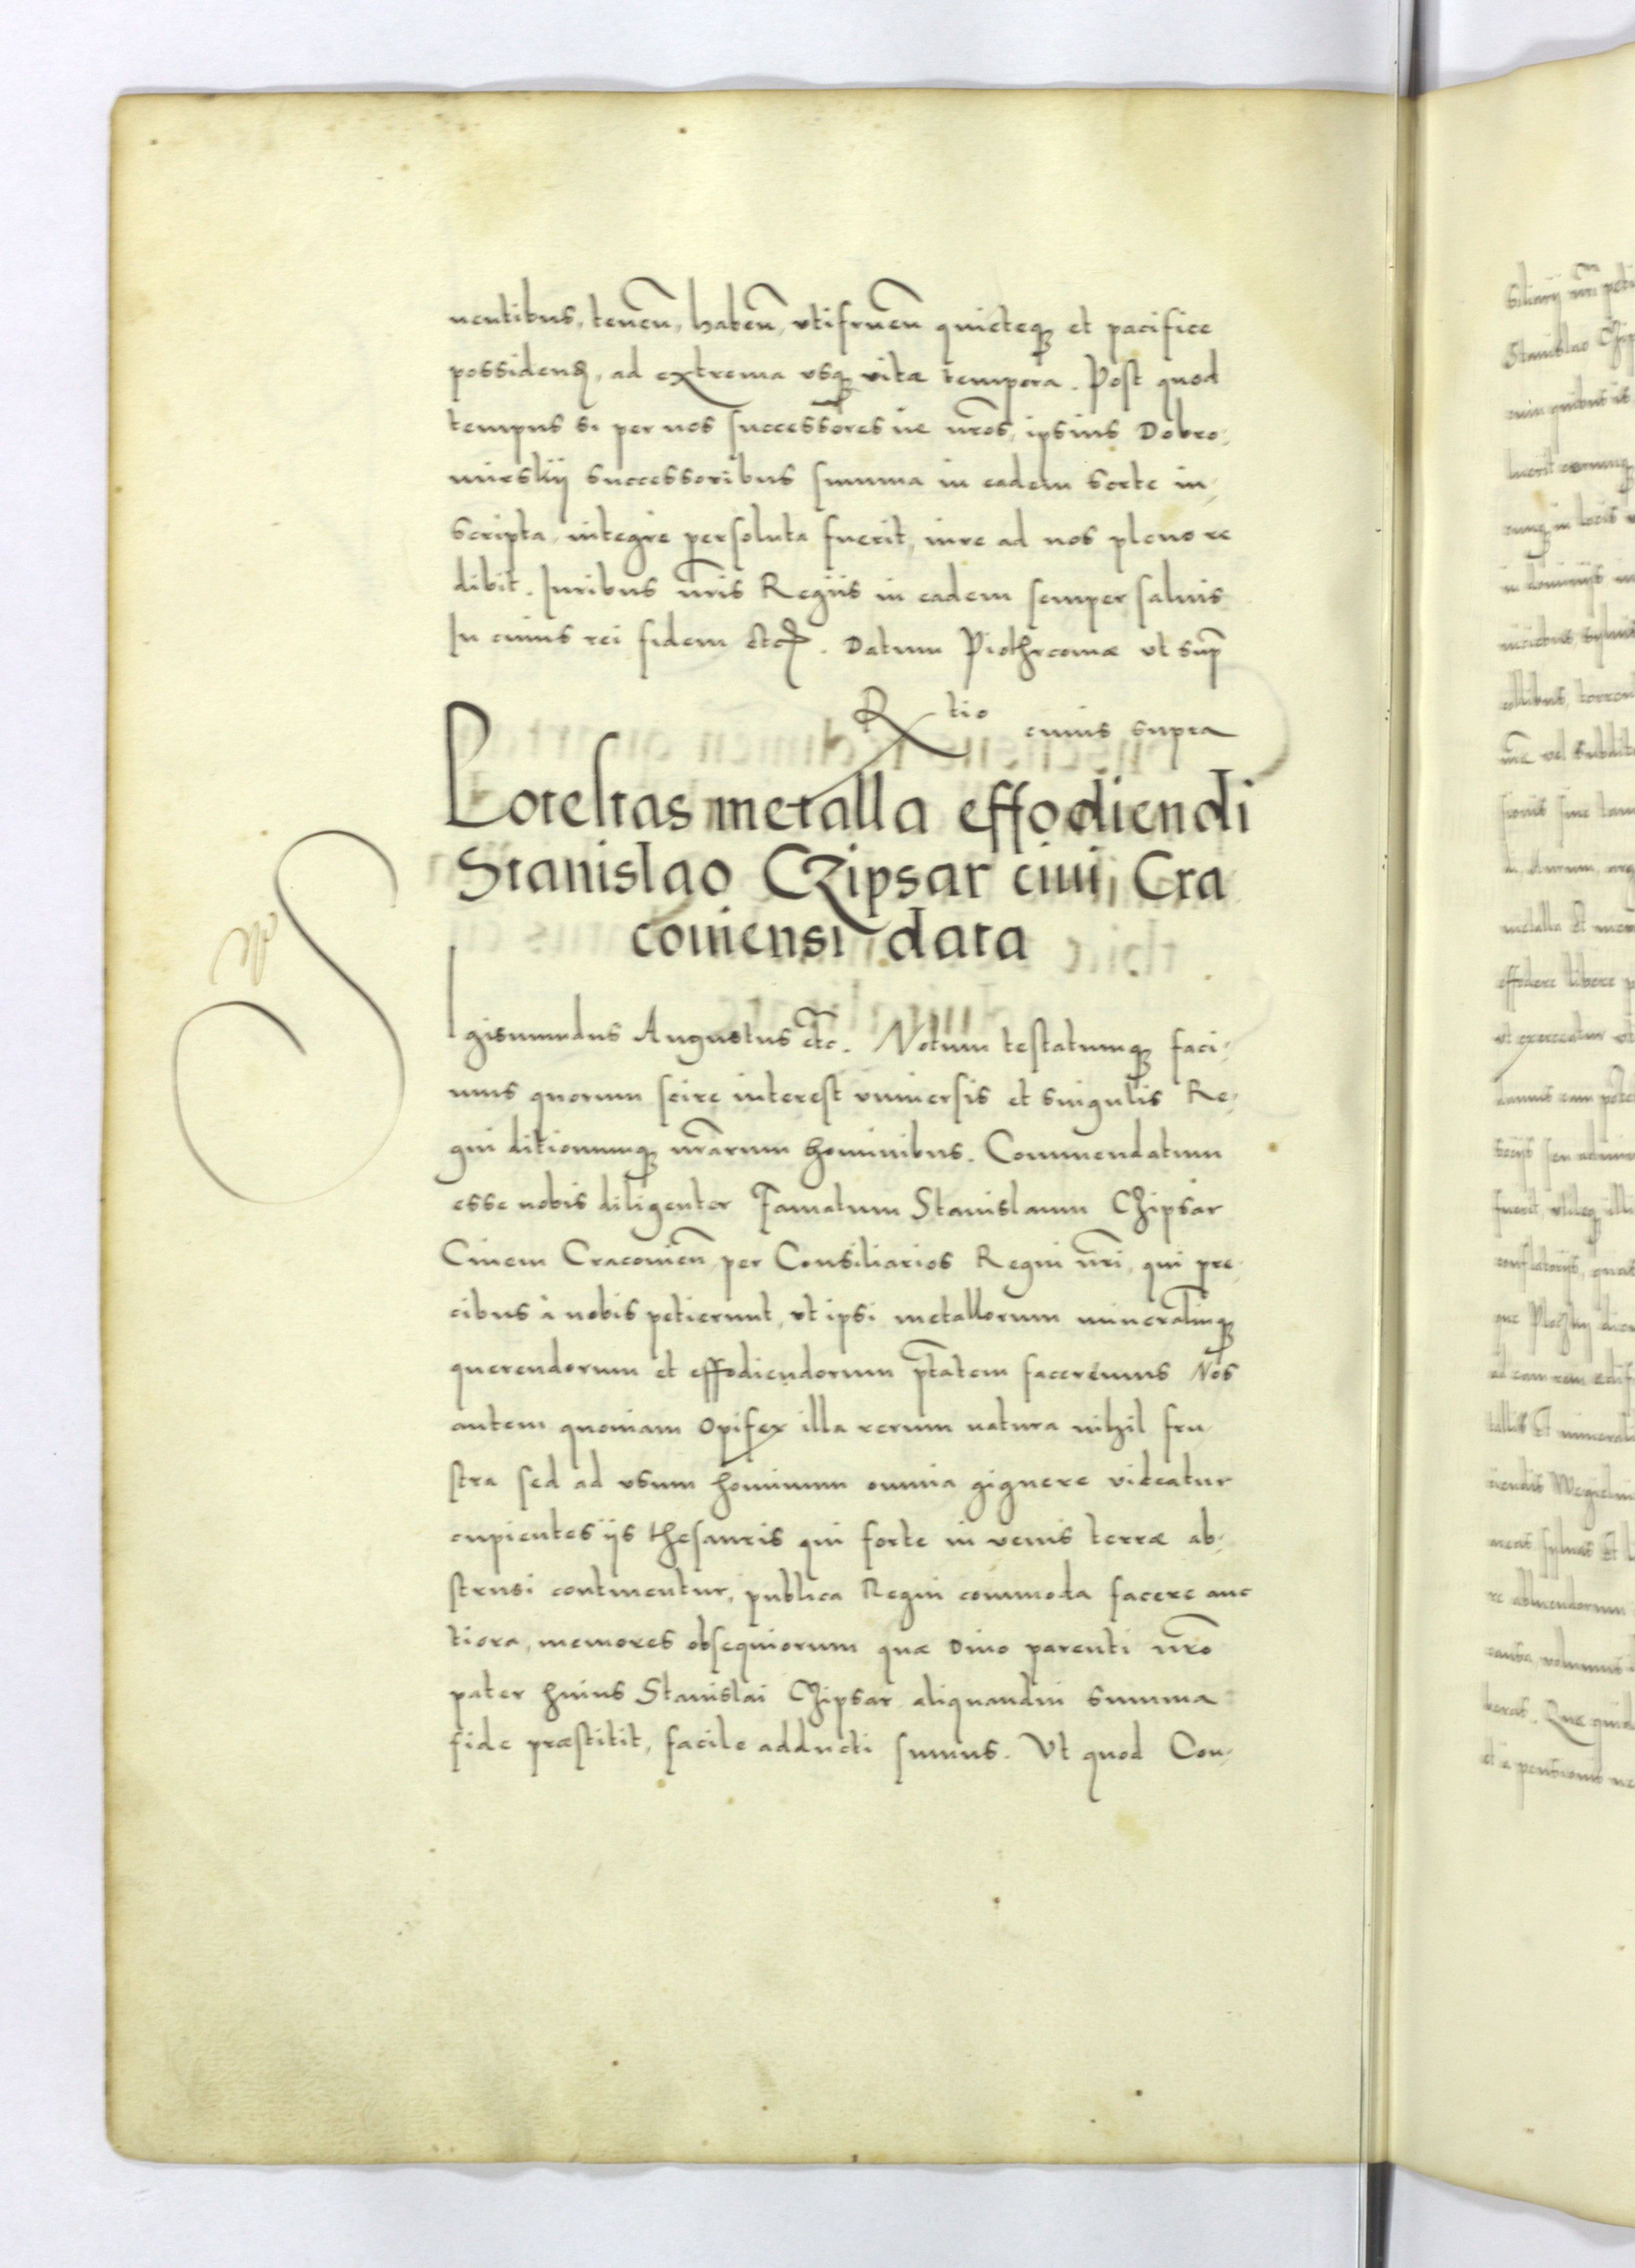 nentibus, tenen̄, haben̄, vtifruen̄ quieteq₃ et pacifice
possiden₎, ad extrema vsq₃ vitæ tempora. Post quod
tempus si per nos successores ue nr̄os, ipsius Dobro-
mirskij successoribus summa in eadem sorte in-
scripta, integre persoluta fuerit, iure ad nos pleno re
dibit. Iuribus nr̄is Regiis in eadem semper saluis
In cuius rei fidem etc. Datum Piothrcouiæ vt sup̄
R tio cuius supra
Potestas metalla effodiendi
Stanislao CZipsar ciui, Cra
couiensi data
Igismundus Augustus etc̄. Notum testatumq₃ faci-
mus quorum scire interest vniuersis et singulis Re-
gni ditionumq₃ nr̄arum hominibus. Commendatum
esse nobis diligenter Famatum Stanislaum CZipsar
Ciuem Cracouien̄ per Consiliarios Regni nr̄i, qui pre-
cibus à nobis petierunt, vt ipsi metallorum mineraliūq₃
querendorum et effodiendorum pt̄atem faceremus Nos
autem quoniam opifex illa rerum natura nihil fru-
stra sed ad vsum hominum omnia gignere videatur
cupientes iis thesauris qui forte in venis terræ ab-
strusi continentur, publica Regni commoda facere auc
tiora, memores obsequiorum quæ Diuo parenti nr̄o
pater huius Stanislai CZipsar aliquandiu summa
fide præstitit, facile adducti sumus. Vt quod Con-